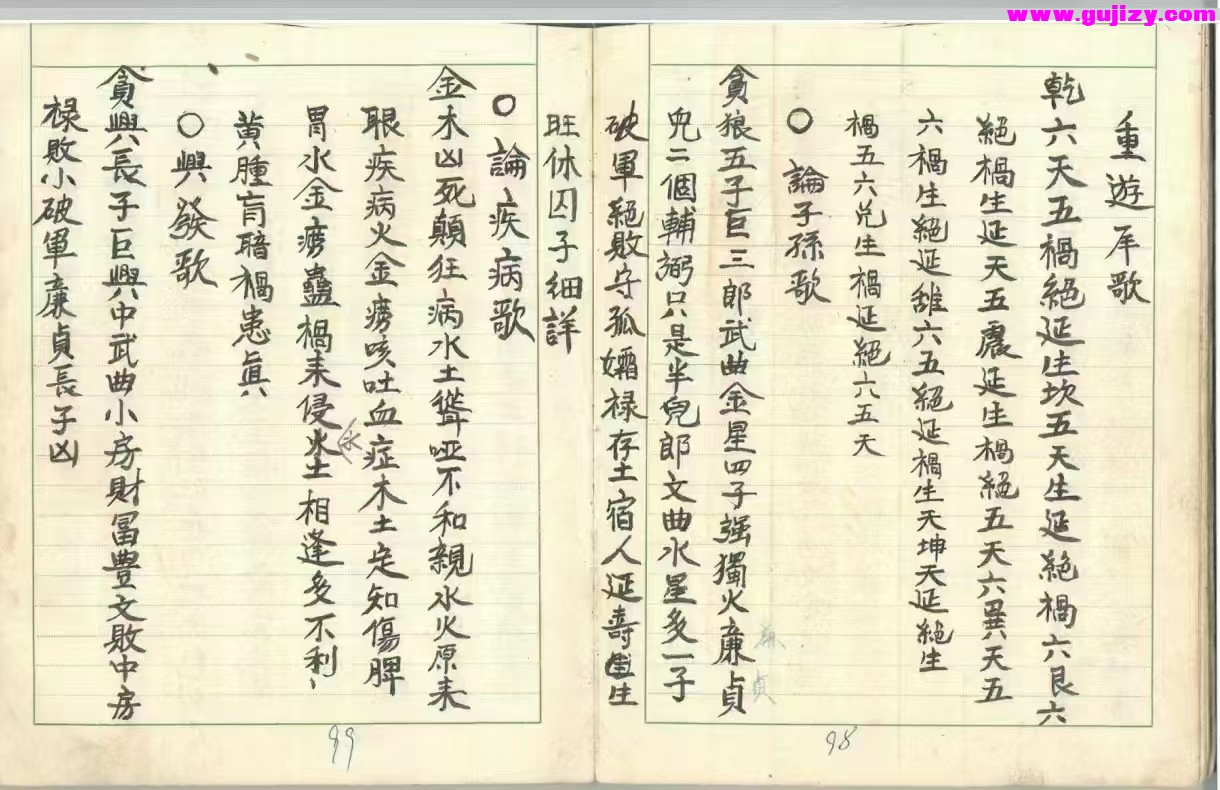 www.gujizy.com
重遊年歌
乾六天五禍絕延生坎五天生延絕禍六艮六
絕禍生延天五震延生禍絕五天六巽天五
六禍生絕延離六五絕延禍生天坤天延絕生
禍五六兌生禍延絕六五天
〇論子孫歌
貪狼五子巨三郎武曲金星四子强獨火廉貞
廉貞
兒二個輔弼只是半兒郎文曲水星多一子
破軍絕敗守孤孀禄存土宿人延壽生
98
旺休囚子細詳
〇論疾病歌
金木凶死顛狂病水土聾啞不和親水火原來
眼疾病火金癆咳吐血症木土定知傷脾
胃水金癆蠱禍來侵水土相逢多不利
水
黃腫盲瞎禍患眞
〇興發歌
貪興長子巨興中武曲小房財冨豐文敗中房
禄敗小破軍廉貞長子凶
99